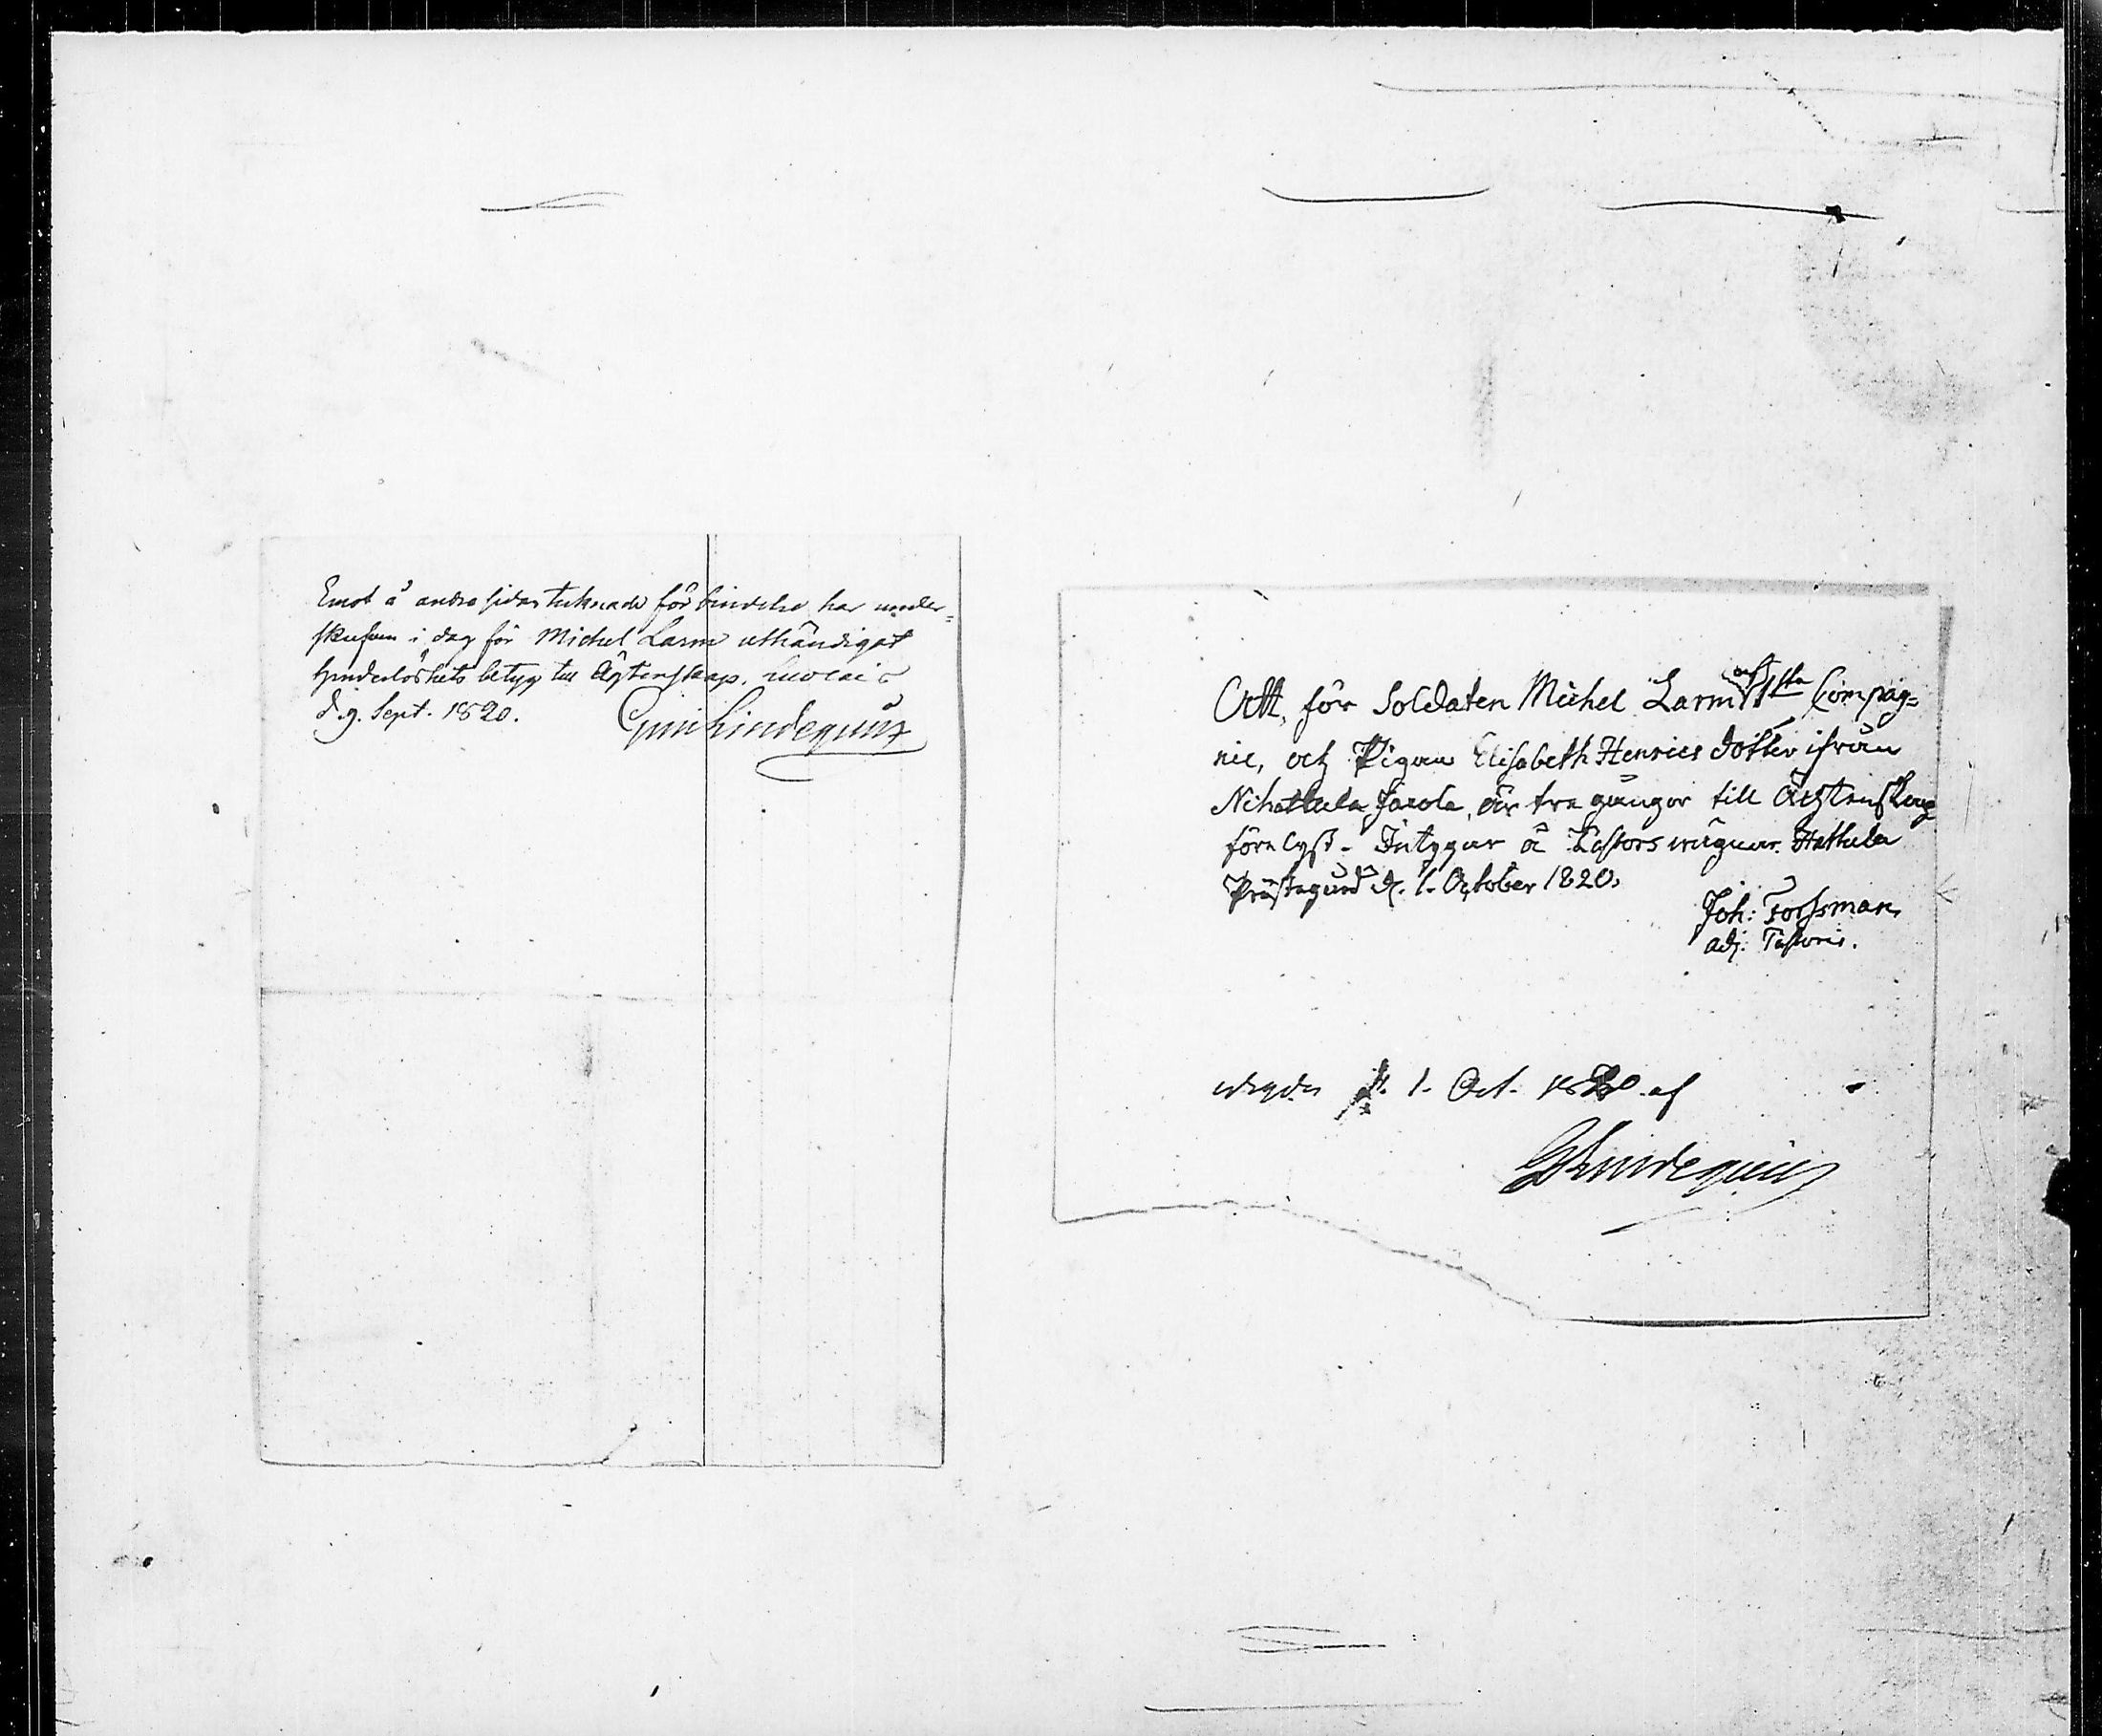 Emot å andra sidan tecknade förbindelse har under=
skrifven i dag för Michel Larm uthändigat
hinderlöshets betyg till Ägtenskap. Luolais
d. 9. Sept. 1820. Lindequist
Att, för Soldaten Michel Larm af 1sta Compag=
nie, och Pigan Elisabeth Henrics dotter ifrån
Nihattula Jacola, är tre gångor till Ächtenskap
förelyst. Intygar å Pastors wägnar. Hattula
Prästegård d. 1. October 1820.
Joh: Forssman
adj: Pastoris.
wigde d. 1. Oct. 1820 af
Lindequist